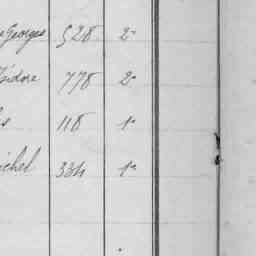 Georges 528 2°
Isidore 778 2°
s 118 1°
ichel 334 1°